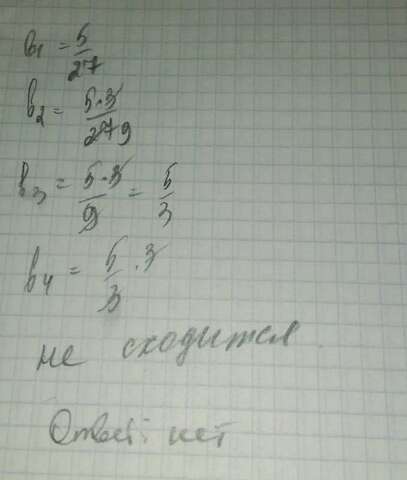 b1 = 5/27
b2 = 5·3/27 9
b3 = 5·3/9 = 5/3
b4 = 5/3 · 3
не сходится
Ответ: нет